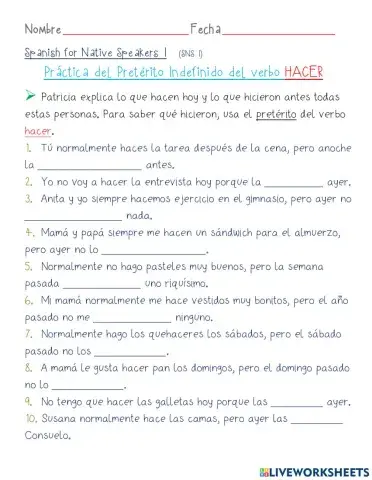 Nombre____________________Fecha__________________
Spanish for Native Speakers 1 (SNS 1)
Práctica del Pretérito Indefinido del verbo HACER
➢ Patricia explica lo que hacen hoy y lo que hicieron antes todas
estas personas. Para saber qué hicieron, usa el pretérito del verbo
hacer.
1. Tú normalmente haces la tarea después de la cena, pero anoche
la ____________________ antes.
2. Yo no voy a hacer la entrevista hoy porque la ___________ ayer.
3. Anita y yo siempre hacemos ejercicio en el gimnasio, pero ayer no
__________________ nada.
4. Mamá y papá siempre me hacen un sándwich para el almuerzo,
pero ayer no lo ___________________.
5. Normalmente no hago pasteles muy buenos, pero la semana
pasada ______________ uno riquísimo.
6. Mi mamá normalmente me hace vestidos muy bonitos, pero el año
pasado no me ______________ ninguno.
7. Normalmente hago los quehaceres los sábados, pero el sábado
pasado no los _____________.
8. A mamá le gusta hacer pan los domingos, pero el domingo pasado
no lo _____________.
9. No tengo que hacer las galletas hoy porque las __________ ayer.
10. Susana normalmente hace las camas, pero ayer las __________
Consuelo.
LIVEWORKSHEETS